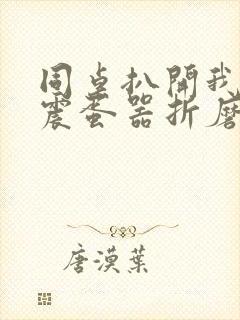 同桌扒開我
震蛋器折磨
唐漠葉